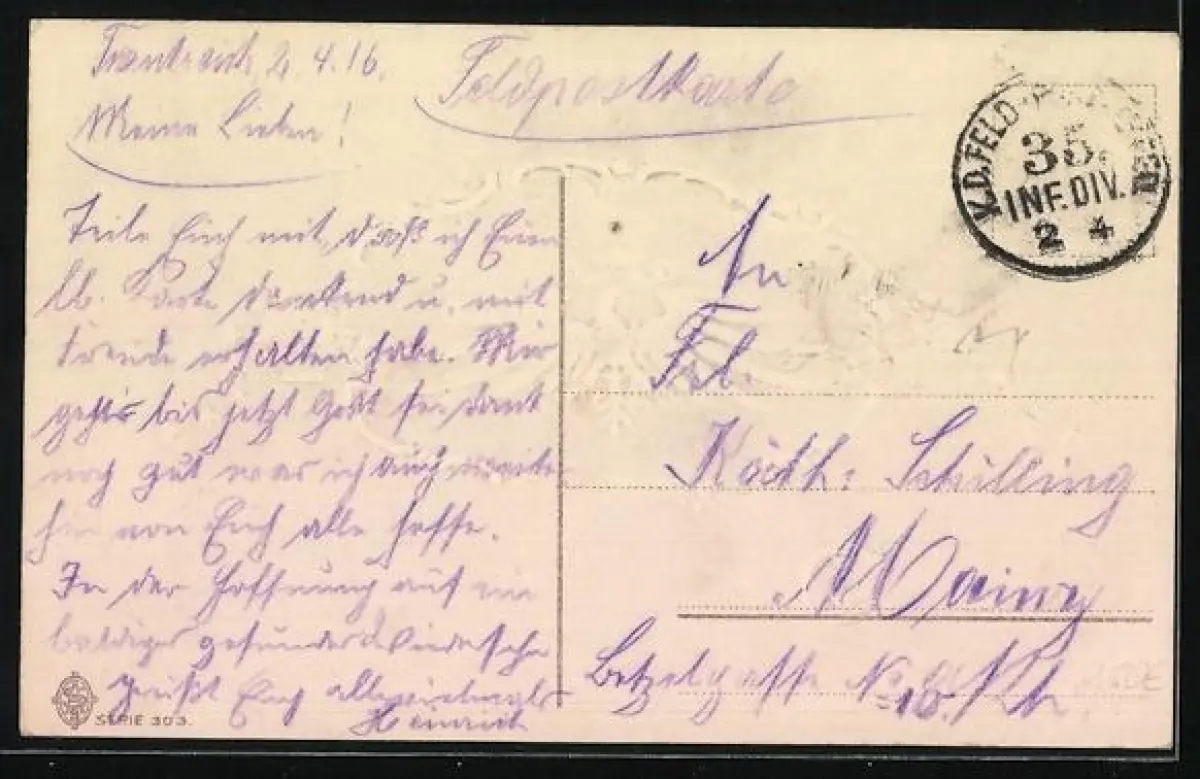 Frankreich, 2.4.16.
Feldpostkarte
Meine Lieben!
Teile Euch mit, daß ich Eure
lb. Karte dankend u. mit
Freude erhalten habe. Mir
geht's bis jetzt Gott sei dank
noch gut was ich auch weiter
hin von Euch alle hoffe.
In der Hoffnung auf ein
baldiges gesundes Wiedersehn
grüßt Euch allevielmals
Heinrich
SERIE 303.
K.D.FELD
35.
INF.DIV.
2 4
An
Frl.
Käth: Schilling
Mainz
Betzelgasse No.